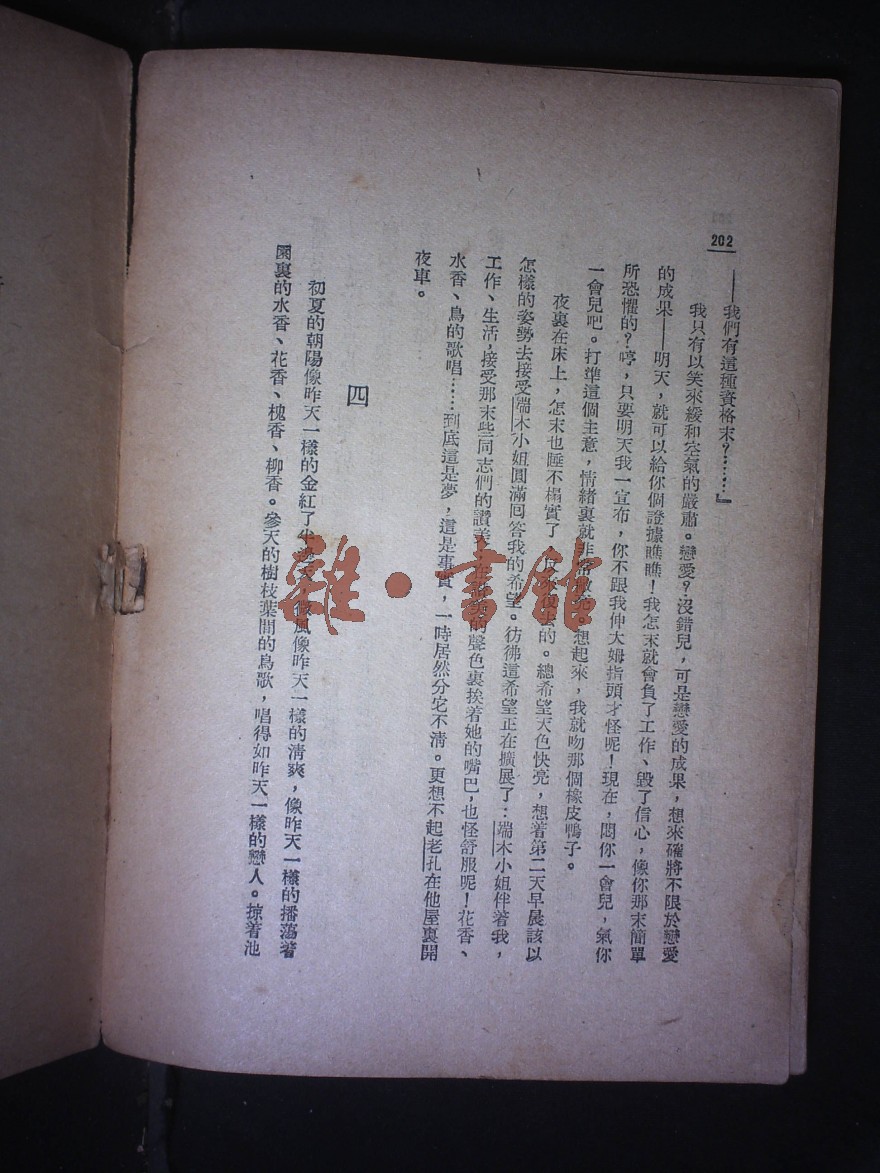 202
——我們有這種資格末？……』
我只有以笑來緩和空氣的嚴肅。戀愛？沒錯兒，可是戀愛的成果，想來確將不限於戀愛
的成果——明天，就可以給你個證據瞧瞧！我怎末就會負了工作、毀了信心，像你那末簡單
所恐懼的？哼，只要明天我一宣布，你不跟我伸大姆指頭才怪呢！現在，悶你一會兒，氣你
一會兒吧。打準這個主意，情緒裏就非常 。想起來，我就吻那個橡皮鴨子。
夜裏在床上，怎末也睡不榻實了， 的。總希望天色快亮，想着第二天早晨該以
怎樣的姿勢去接受端木小姐圓滿回答我的希望。彷彿這希望正在擴展了：端木小姐伴着我，
工作、生活，接受那末些同志們的讚美，在 的聲色裏挨着她的嘴巴，也怪舒服呢！花香、
水香、鳥的歌唱……到底這是夢，這是事實，一時居然分它不清。更想不起老孔在他屋裏開
夜車。
四
初夏的朝陽像昨天一樣的金紅了 ，微風像昨天一樣的清爽，像昨天一樣的播蕩着
園裏的水香、花香、槐香、柳香。參天的樹枝葉間的鳥歌，唱得如昨天一樣的戀人。掠着池
雜·書館